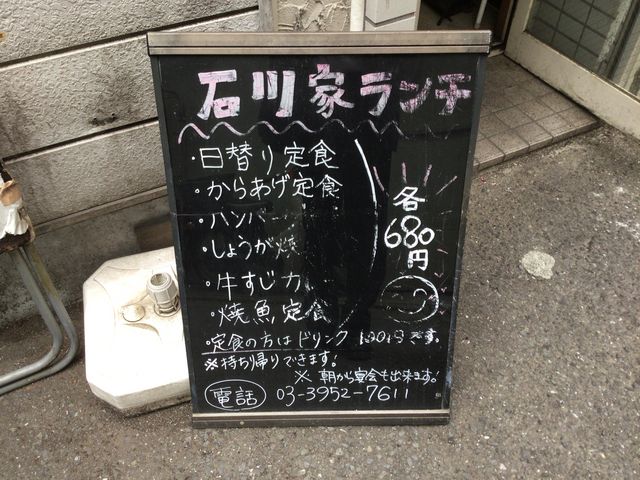 石川家ランチ
・日替り定食
・からあげ定食
・ハンバー
・しょうが焼
・牛すじカ
・焼魚定食
各
680
円
・定食の方はドリンク 120円です。
※持ち帰りできます!
※ 朝から宴会も出来ます!
電話 03-3952-7611